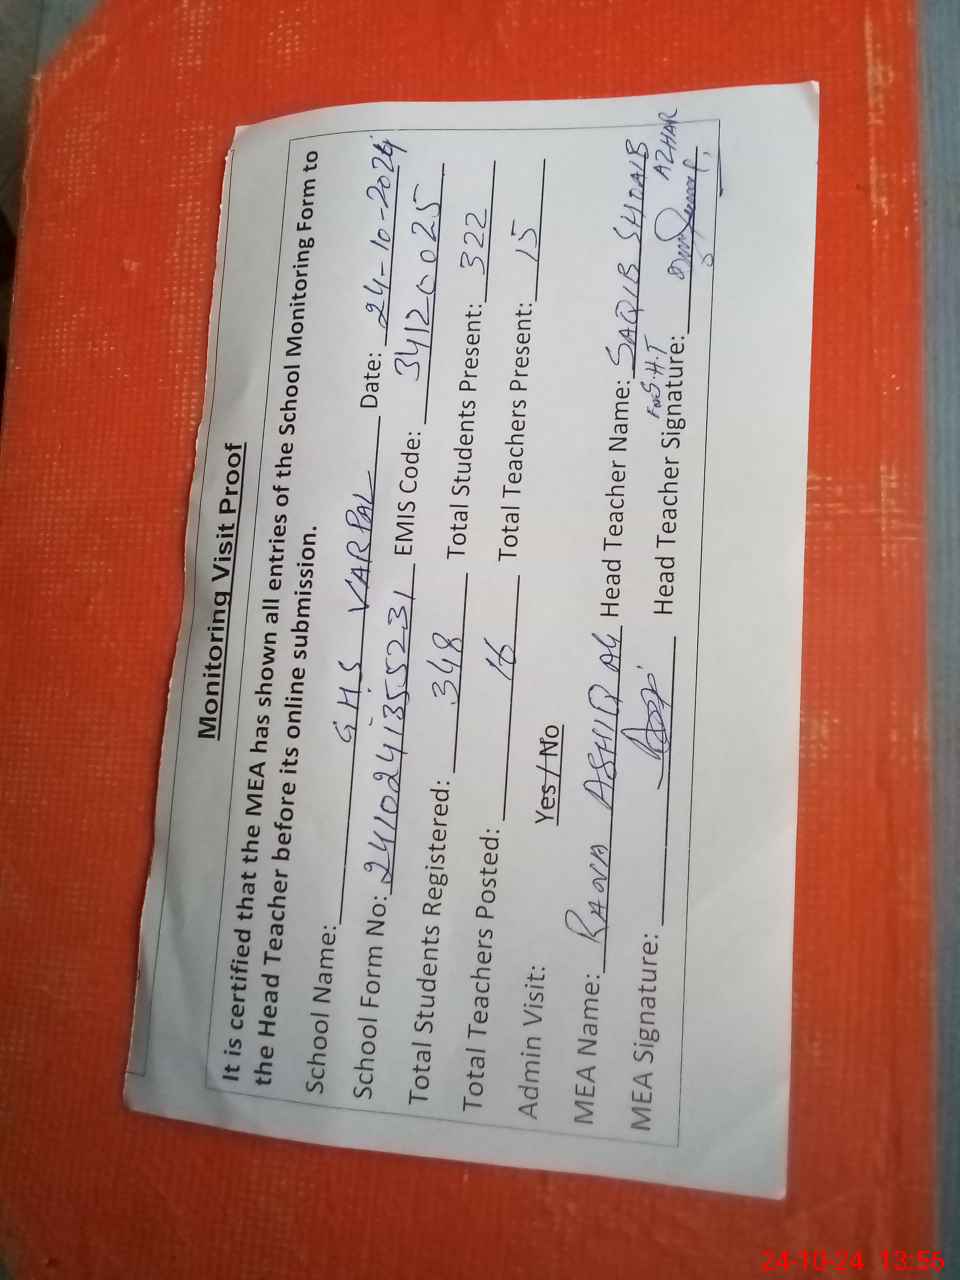 Monitoring Visit Proof
It is certified that the MEA has shown all entries of the School Monitoring Form to
the Head Teacher before its online submission.
School Name: GHS VARPAL Date: 24-10-2024
School Form No: 2410241355231 EMIS Code: 34120025
Total Students Registered: 348 Total Students Present: 322
Total Teachers Posted: 16 Total Teachers Present: 15
Admin Visit: Yes / No
MEA Name: RANA ASHIQ Ali Head Teacher Name: SAQIB SHOAIB
For S.H.T AZHAR
MEA Signature: Head Teacher Signature:
24-10-24 13:56